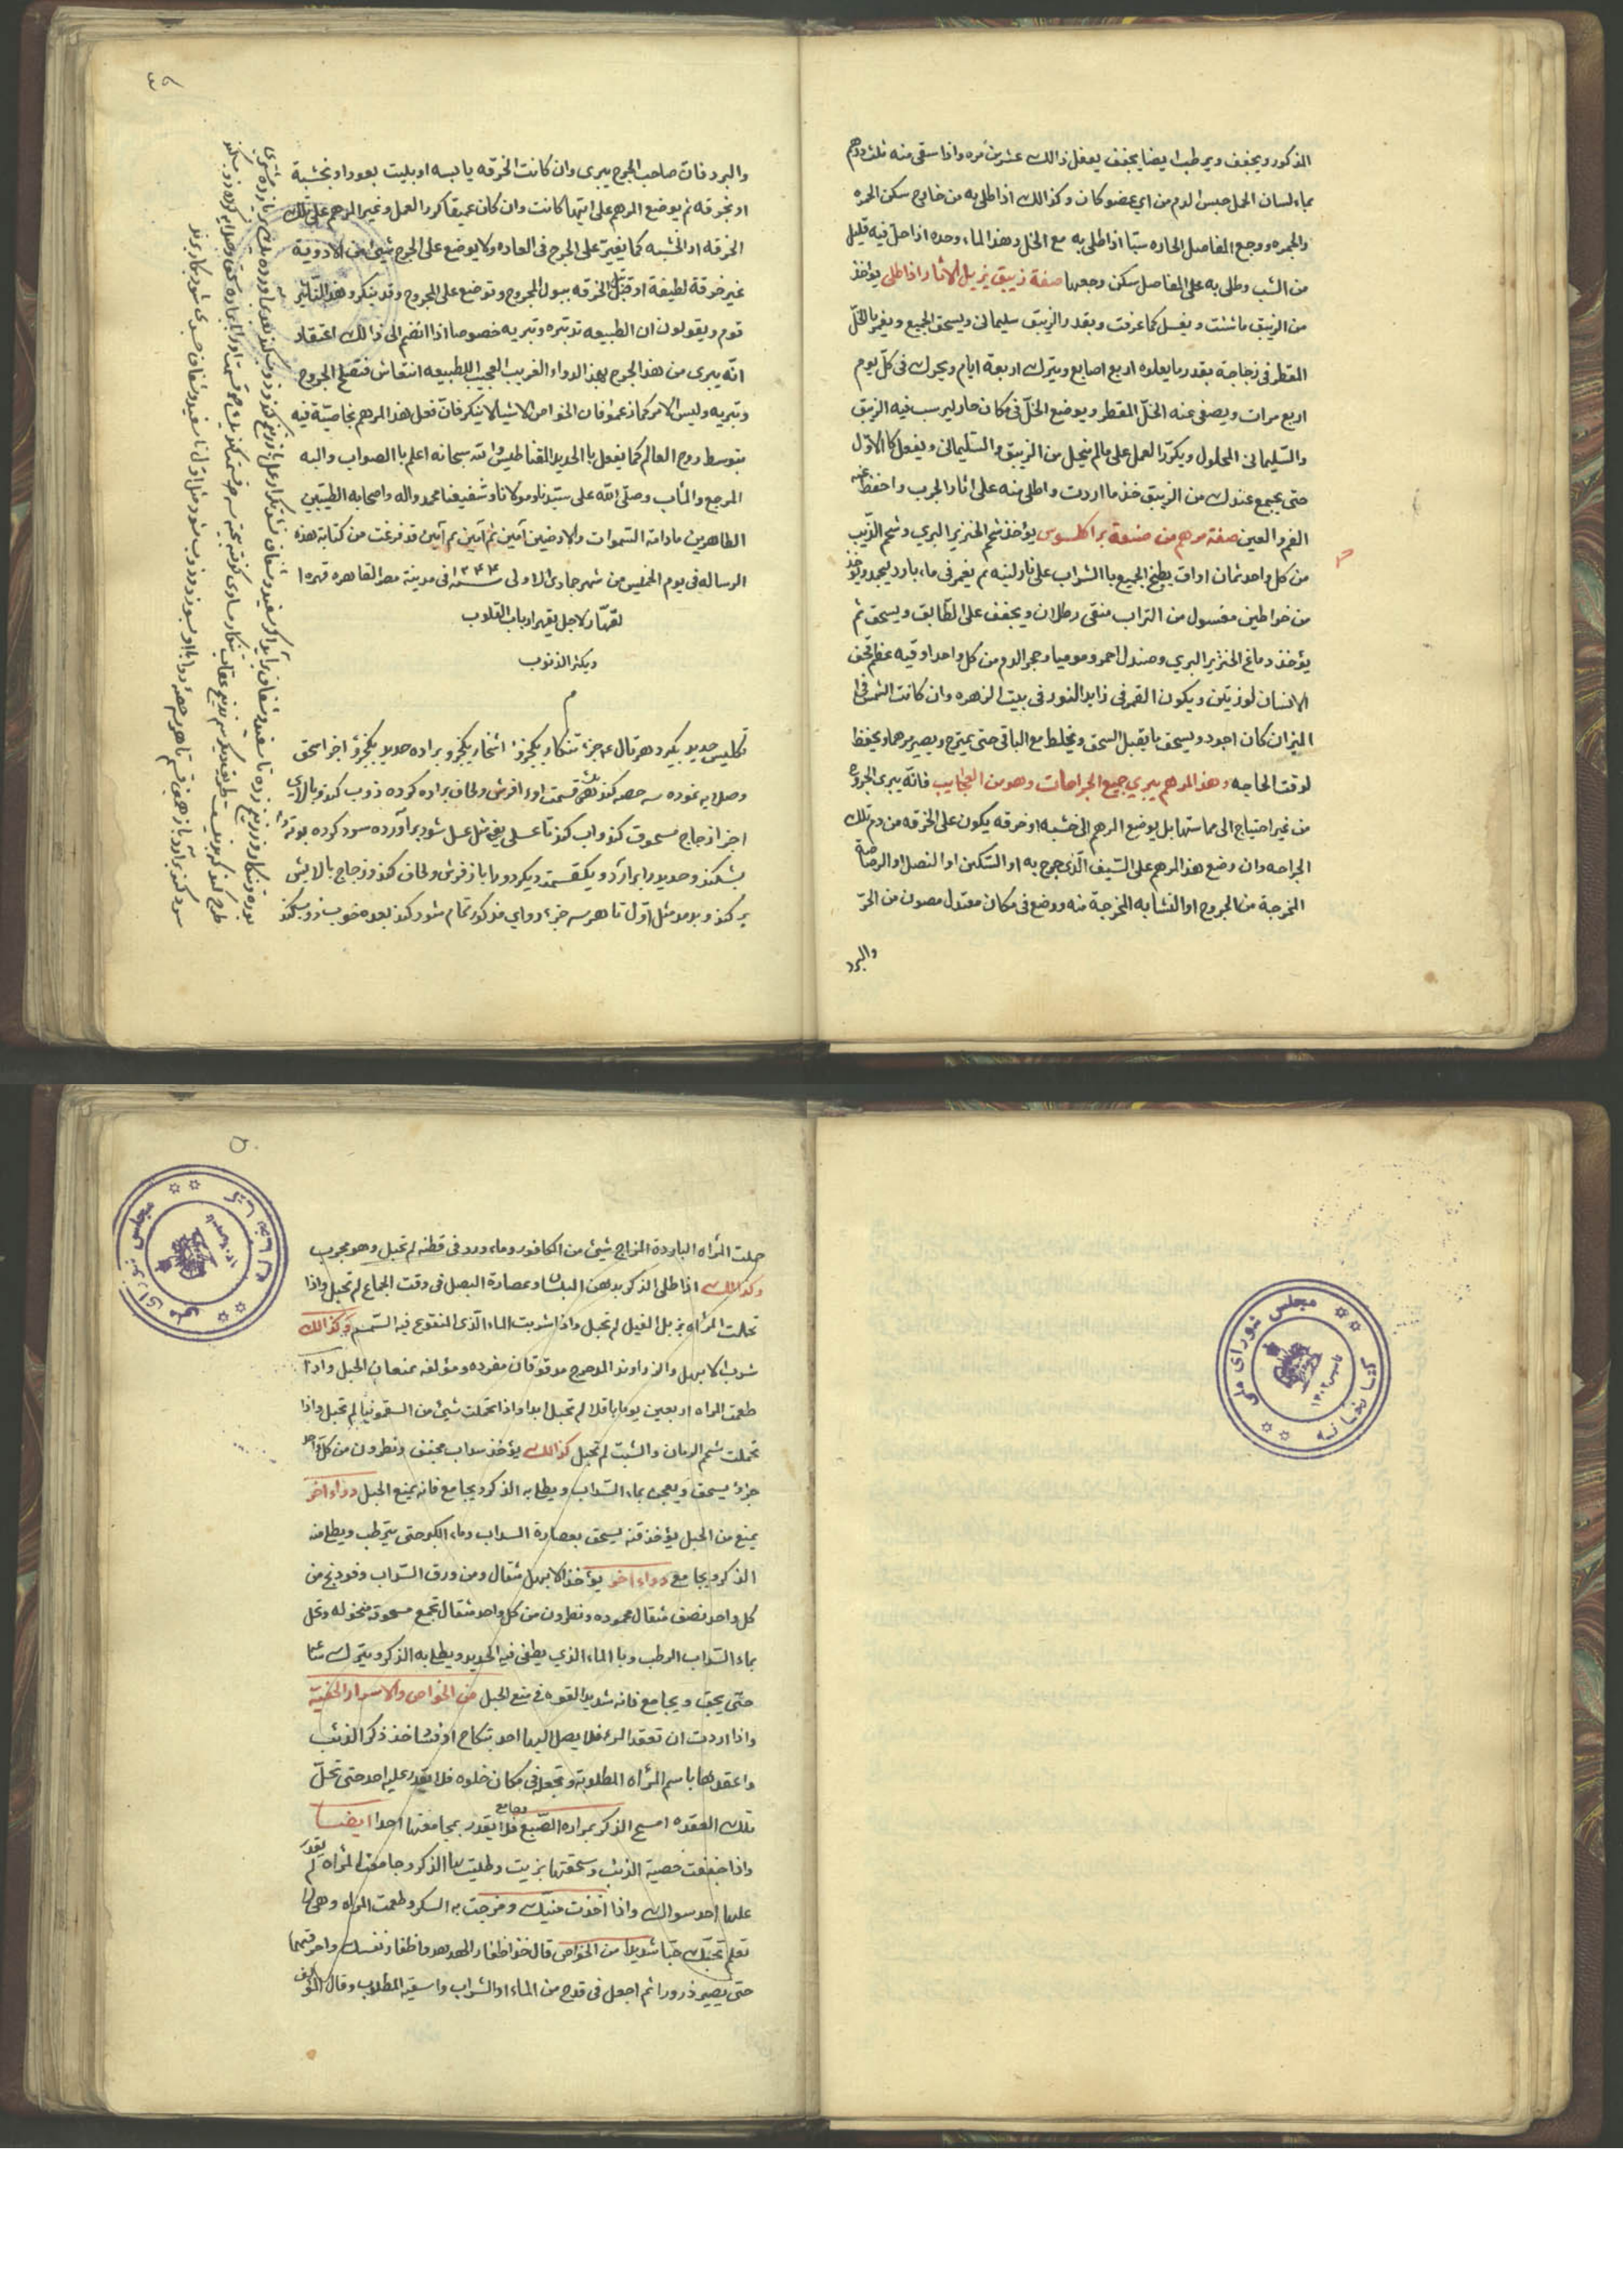 المذكور ويجفف ويرطب ايضا يجفف يفعل ذالك عشرين مره واذا سقى منه ثلث درهم
بماء لسان الحمل حبس الدم من اي عضو كان وكذالك اذا طلى به من خارج سكن الحمره
والجمره ووجع المفاصل الحاره سيّما اذا طلى به مع الخل وهذا الماء وحده اذا حلّ فيه قليل
من الشب وطلى به على المفاصل سكن وجعها صفة زيبق يزيل الاثار اذا طلى يؤخذ
من الزيبق ما شئت ويغسل كما عرفت وبقدر الزيبق سليمانى ويسحق الجميع ويغمر بالخلّ
المقطر فى زجاجة بقدر ما يعلوه اربع اصابع ويترك اربعة ايام ويحرك فى كلّ يوم
اربع مرات ويصفى عنه الخلّ المقطر ويوضع الخلّ فى مكان حار ليرسب فيه الزيبق
والسّليمانى المحلول ويكرّر العمل على مالم ينحيل من الزيبق والسّليمانى ويفعل كالاوّل
حتى يجمع عندك من الزيبق خذ ما اردت واطلى منه على اثار الجرب واحفظ عنه
الفم والعين صفة مرهم من صنعة براكلسوس يؤخذ شحم الخنزير البري وشحم الدّيب
من كل واحد ثمان اواق يطبخ الجميع باالشراب على نار لينه ثم يغمر فى ماء بارد ليجمد ويؤخذ
من خراطين مغسول من التراب منقى رطلان ويجفف على الطّابق ويسحق ثم
يؤخذ دماغ الخنزير البري وصندل احمر وموميا وحجر الدم من كل واحد اوقيه عظم قحف
الانسان لوزيتين ويكون القمر فى زايد النور فى بيت الزهره وان كانت الشمس فى
الميزان كان اجود ويسحق ما يقبل السحق ويخلط مع الباقى حتى يمتزج ويصير مرهما ويحفظ
لوقت الحاجه وهذا المرهم يبري جميع الجراحات وهو من العجايب فانّه يبرى الجروح
من غير احتياج الى مماستها بل يوضع المرهم الى خشبه او خرقه يكون على الخرقه من دم تلك
الجراحه وان وضع هذا المرهم على السّيف الّذى جرح به او السّكين او النصل او الرصاصة
المخرجة من الجروح او النشابه المخرجة منه ووضع فى مكان معتدل مصون من الحرّ
والبرد
٤٩
والبرد فان صاحب الجرح يبرى وان كانت الخرقه يابسه او بليت بعود او بخشبة
او بخرقه ثم يوضع المرهم على ايتها كانت وان كان عميقا كرر العمل وغير المرهم على تلك
الخرقه او الخشبه كما يغير على الجرح فى العاده ولا يوضع على الجرح شيئ من الادويه
غير خرقة لطيفة او قبّل الخرقه ببول المجروح وتوضع على المجروح وقد ينكر هذا التاثير
قوم ويقولون ان الطبيعه تدبّره وتبريه خصوصا اذا انضم الى ذالك اعتقاد
انّه يبرى من هذا الجرح بهذا الدواء الغريب العجيب للطبيعه انتعاش فتصلح الجروح
وتبريه وليس الامر كما زعمو فان الخواص الاشيا لا ينكر فانّ فعل هذا المرهم بخاصيّة فيه
بتوسط روح العالم كما يفعل باالحديد المقناطيس والله سبحانه اعلم باالصواب واليه
المرجع والمئاب وصلّى الله على سيّدنا ومولانا وشفيعنا محمد واله واصحابه الطيّبين
الطاهرين مادامة السّموات والارضين آمين ثم آمين ثم آمين قد فرغت من كتابة هذه
الرساله فى يوم الخميس من شهر جمادى الاولى سنه ١٢٤٤ فى مدينة مصر القاهره قهره ا
لقهّار لاجل يقهر ارباب القلوب
ويكثر الذنوب
م
تكليس حديد بيكرد هرتال عه جزء تنكار يكجزؤ اشخار يكجزو براده حديد يكجزؤ اجزا سحق
وصلايه نموده سه حصه كند قسمت اول افرش ولحاف براده كرده ذوب كند وبالاى
اجزا زجاج مسحوق كند واب كند تا عسلى يعنى مثل عسل شود برآورده سرد كرده بوته را
بشكند وحديد را برآرد ويكقسمت ديكر دوا باز فرش ولحاف كند وزجاج بالايش
بر كند وبدمد مثل اوّل تا هر سه جزء دواي مذكور تمام شود كند بعده خوب ذوب كند
٥٠
حملت المرأه الباردة المزاج شيئ من الكافور وماء ورد فى قطنه لم تحبل وهو مجرب
وكذالك اذا طلى الذكر بدهن البلسان وعصارة البصل فى وقت الجماع لم تحبل واذا
تحملت المراه بزبل الفيل لم تحبل واذا شربت الماء الّذى المنقوع فيه السّمسم وكذالك
شرب الابهل والزراوند المدحرج مدقوقان مفرده ومؤلفه يمنعان الحبل واذا
طعمت المراه اربعين يوما باقلا لم تحبل ابدا واذا تحملت شيئ من السقمونيا لم تحبل واذا
تحملت شحم الرمان والشبّ لم تحبل كذالك يؤخذ سداب مجفف ونطرون من كل واحد
جزؤ يسحق ويعجن بماء السّداب ويطلى به الذكر ويجامع فانه يمنع الحبل دواء اخر
يمنع من الحبل يؤخذ قنه يسحق بعصارة السداب وماء الكبر حتى يترطب ويطلى منه
الذكر ويجامع دواء اخر يؤخذ الابهل مثقال ومن ورق السّداب وفودنج من
كل واحد نصف مثقال محموده ونطرون من كل واحد مثقال تجمع مسحوقة منخوله وتحل
بماء السّداب الرطب وبا الماء الذي يطفى فيه الحديد ويطلى به الذكر ويترك ساعة
حتّى يجف ويجامع فانه شديد القوه فى منع الحبل من الخواص والاسرار الخفيّة
واذا اردت ان تعقد المراه فلا يصل اليها احد بنكاح او فسا خذ ذكر الذئب
واعقدها باسم المرأه المطلوبة وتجعل فى مكان خلوه فلا يقدر عليه احد حتى تحلّ
تلك العقده امسح الذكر بمراره الضّبع وجامع فلا يقدر بمجامعتها احدا ايضا
واذا جففت خصية الذئب وسحقتها بزيت وطليت بها الذكر وجامعت المرأه لم يقدر
عليها احد سواك واذا اخذت منيّك ومزجت به السكر وطعمت المراه وهى لا
تعلم تحبّك حبّا شديدا من الخواص قال خذ اظفار الهدهد واظفار نفسك واحرقهما
حتى يصير ذرورا ثم اجعل فى قدح من الماء او الشراب واسقيه المطلوب وقال المؤلف
مجلس شوراى ملى
كتابخانه
مجلس شوراى ملى
كتابخانه